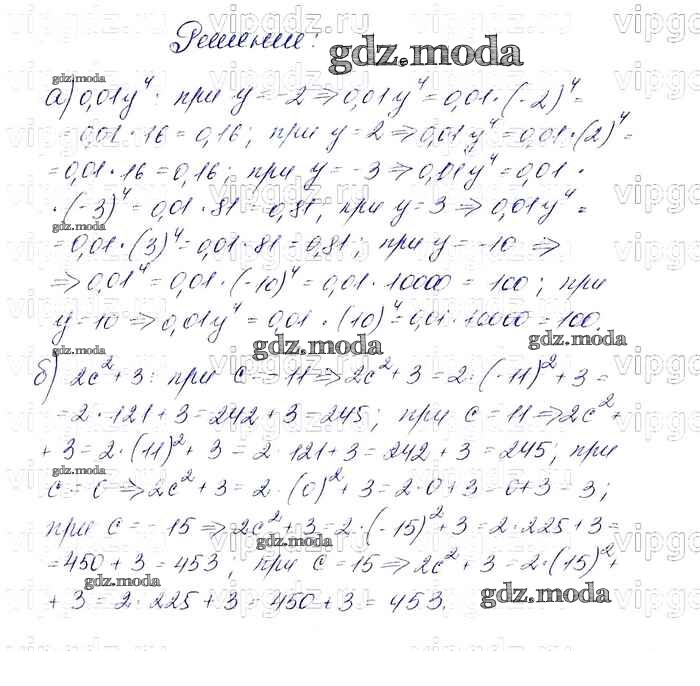 Решение:
а) 0,01y⁴: при y = -2 ⇒ 0,01y⁴ = 0,01·(-2)⁴ =
= 0,01·16 = 0,16; при y = 2 ⇒ 0,01y⁴ = 0,01·(2)⁴ =
= 0,01·16 = 0,16; при y = -3 ⇒ 0,01y⁴ = 0,01·
·(-3)⁴ = 0,01·81 = 0,81; при y = 3 ⇒ 0,01y⁴ =
= 0,01·(3)⁴ = 0,01·81 = 0,81; при y = -10 ⇒
⇒ 0,01⁴ = 0,01·(-10)⁴ = 0,01·10000 = 100; при
y = 10 ⇒ 0,01y⁴ = 0,01·(10)⁴ = 0,01·10000 = 100.
б) 2c² + 3: при c = -11 ⇒ 2c² + 3 = 2·(-11)² + 3 =
= 2·121 + 3 = 242 + 3 = 245; при c = 11 ⇒ 2c² +
+ 3 = 2·(11)² + 3 = 2·121 + 3 = 242 + 3 = 245; при
c = 0 ⇒ 2c² + 3 = 2·(0)² + 3 = 2·0 + 3 = 0 + 3 = 3;
при c = -15 ⇒ 2c² + 3 = 2·(-15)² + 3 = 2·225 + 3 =
= 450 + 3 = 453; при c = 15 ⇒ 2c² + 3 = 2·(15)² +
+ 3 = 2·225 + 3 = 450 + 3 = 453.
gdz.moda
vipgdz.ru